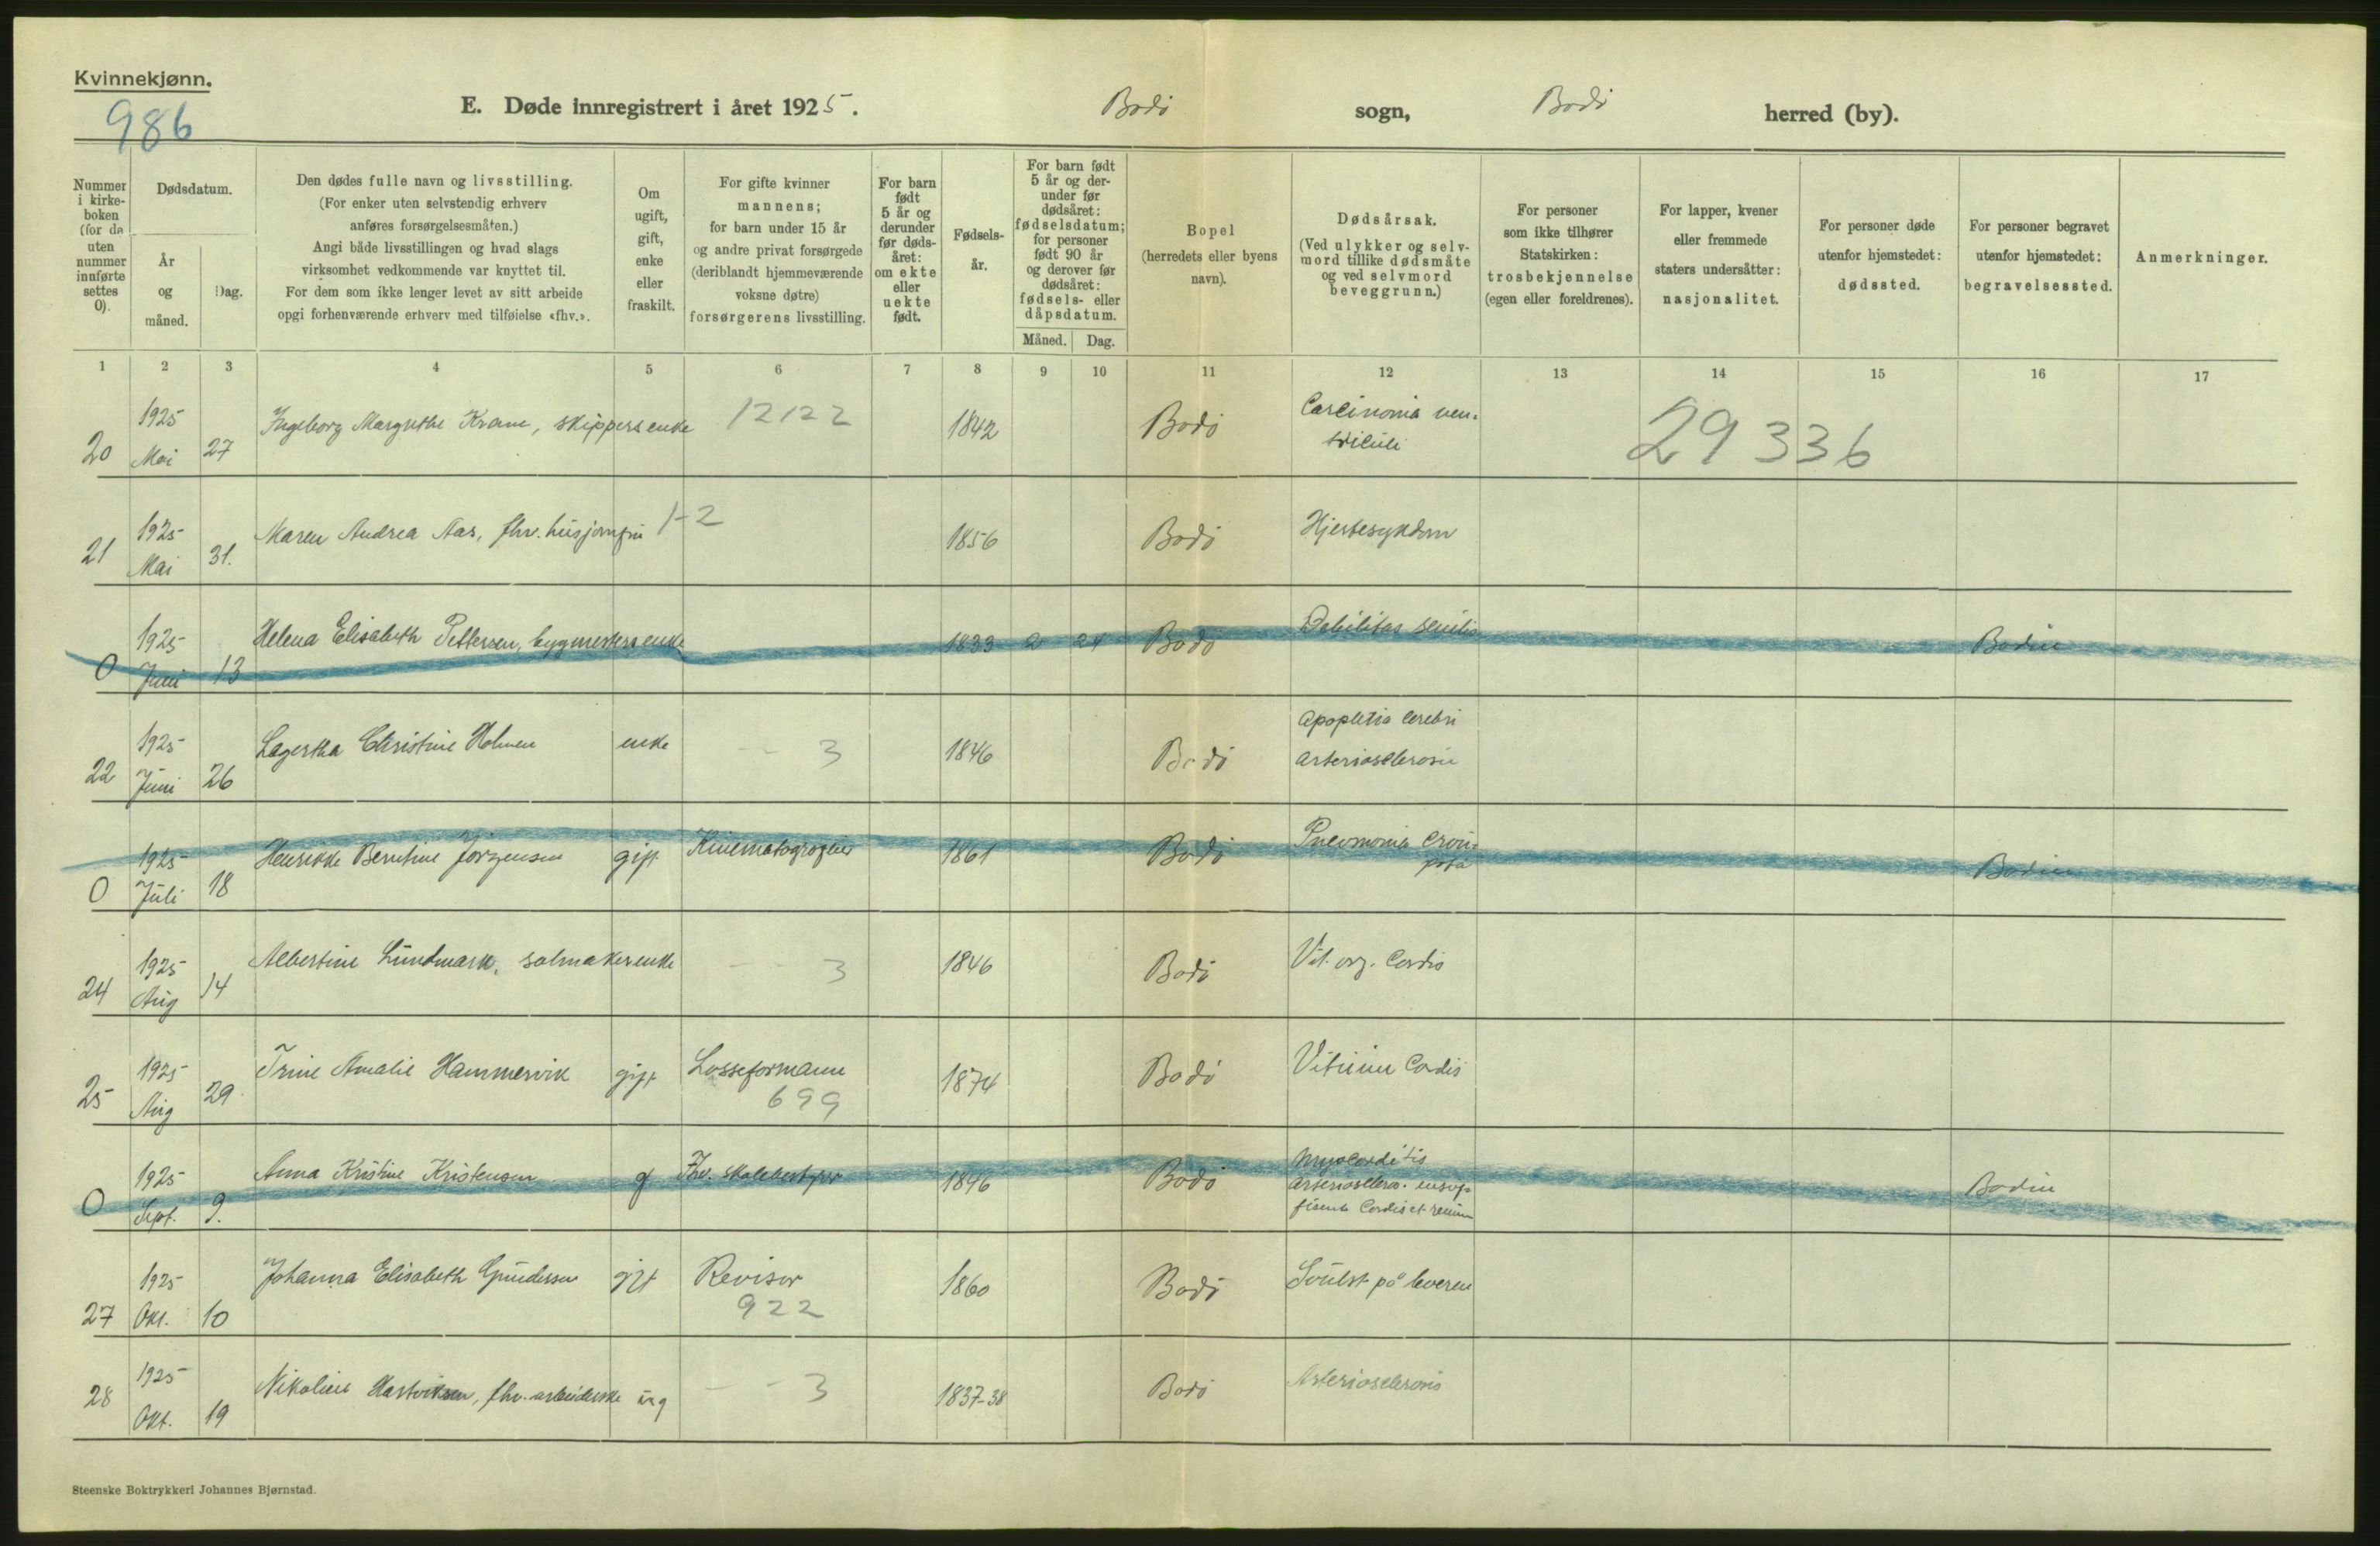 Kvinnekjønn.
986
E. Døde innregistrert i året 1925. Bodö sogn, Bodö herred (by).
Nummer i kirke- boken (for de uten nummer innførte settes 0).
Dødsdatum.
År og måned.
Dag.
Den dødes fulle navn og livsstilling.
(For enker uten selvstendig erhverv
anføres forsørgelsesmåten.)
Angi både livsstillingen og hvad slags
virksomhet vedkommende var knyttet til.
For dem som ikke lenger levet av sitt arbeide
opgi forhenværende erhverv med tilføielse «fhv.».
Om ugift, gift, enke eller fraskilt.
For gifte kvinner
mannens;
for barn under 15 år
og andre privat forsørgede
(deriblandt hjemmeværende
voksne døtre)
forsørgerens livsstilling.
For barn født 5 år og derunder før døds- året: om ekte eller uekte født.
Fødsels- år.
For barn født
5 år og der-
under før
dødsåret:
fødselsdatum;
for personer
født 90 år
og derover før
dødsåret:
fødsels- eller
dåpsdatum.
Måned. Dag.
Bopel
(herredets eller byens
navn).
Dødsårsak.
(Ved ulykker og selv-
mord tillike dødsmåte
og ved selvmord
beveggrunn.)
For personer
som ikke tilhører
Statskirken:
trosbekjennelse
(egen eller foreldrenes).
For lapper, kvener
eller fremmede
staters undersåtter:
nasjonalitet.
For personer døde
utenfor hjemstedet:
dødssted.
For personer begravet
utenfor hjemstedet:
begravelsessted.
Anmerkninger.
1 2 3 4 5 6 7 8 9 10 11 12 13 14 15 16 17
20 1925 Mai 27 Ingeborg Margrethe Krane, skippersenke 12122 1842 Bodö Carcinoma ven-
triculi 29336
21 1925 Mai 31. Maren Andrea Aas, fhv. husjomfru 1-2 1856 Bodö Hjertesykdom
0 1925 Juni 13 Helena Elisabeth Pettersen, bygmestersenke 1833 2 24 Bodö Debilitas senilis Bodin
22 1925 Juni 26 Lagertha Christine Holmen enke -- 3 1846 Bodö Apopletia cerebri
arteriosclerosis
0 1925 Juli 18 Henrikke Berntine Jörgensen gift Kinematografeier 1861 Bodö Pneomonia crou-
posa Bodin
24 1925 Aug 14 Albertine Lundmark, salmakerenke -- 3 1846 Bodö Vit. org. Cordis
25 1925 Aug 29. Trine Amalie Hammervik gift Losseformann
699 1874 Bodö Vitium Cordis
0 1925 Sept. 9. Anna Kristine Kristensen g Fhv. skolebestyrer 1846 Bodö Myocarditis
arterioscleros. insuf-
ficients Cordis et renum Bodin
27 1925 Okt. 10 Johanna Elisabeth Gundersen gift Revisor
922 1860 Bodö Svulst på leveren
28 1925 Okt. 19 Nikoline Hartviksen, fhv. arbeiderske ug -- 3 1837-38 Bodö Arteriosclerosis
Steenske Boktrykkeri Johannes Bjørnstad.